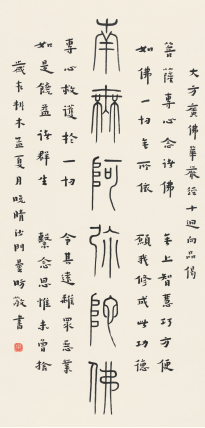 大方廣佛華嚴經十迴向品偈
菩薩專心念諸佛 無上智慧巧方便
如佛一切無所依 願我修成此功德
南無阿彌陀佛
專心救護於一切 令其遠離眾惡業
如是饒益諸群生 繫念思惟未曾捨
歲在析木孟夏月晚晴沙門曇昉敬書